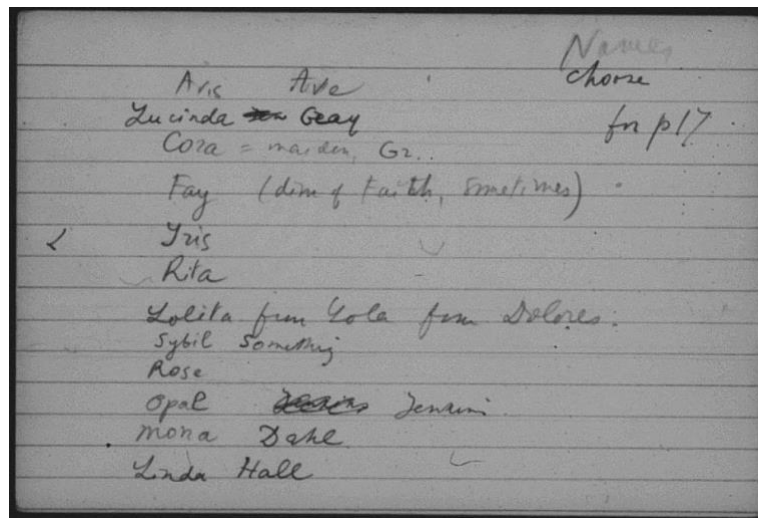 Names
choose
for p 17
Avis Ave
Lucinda Geay
Cora = maiden, Gr..
Fay (dim of Faith, sometimes)
Iris
Rita
Lolita from Lola from Dolores.
Sybil Something
Rose
Opal
Mona Dahl
Linda Hall